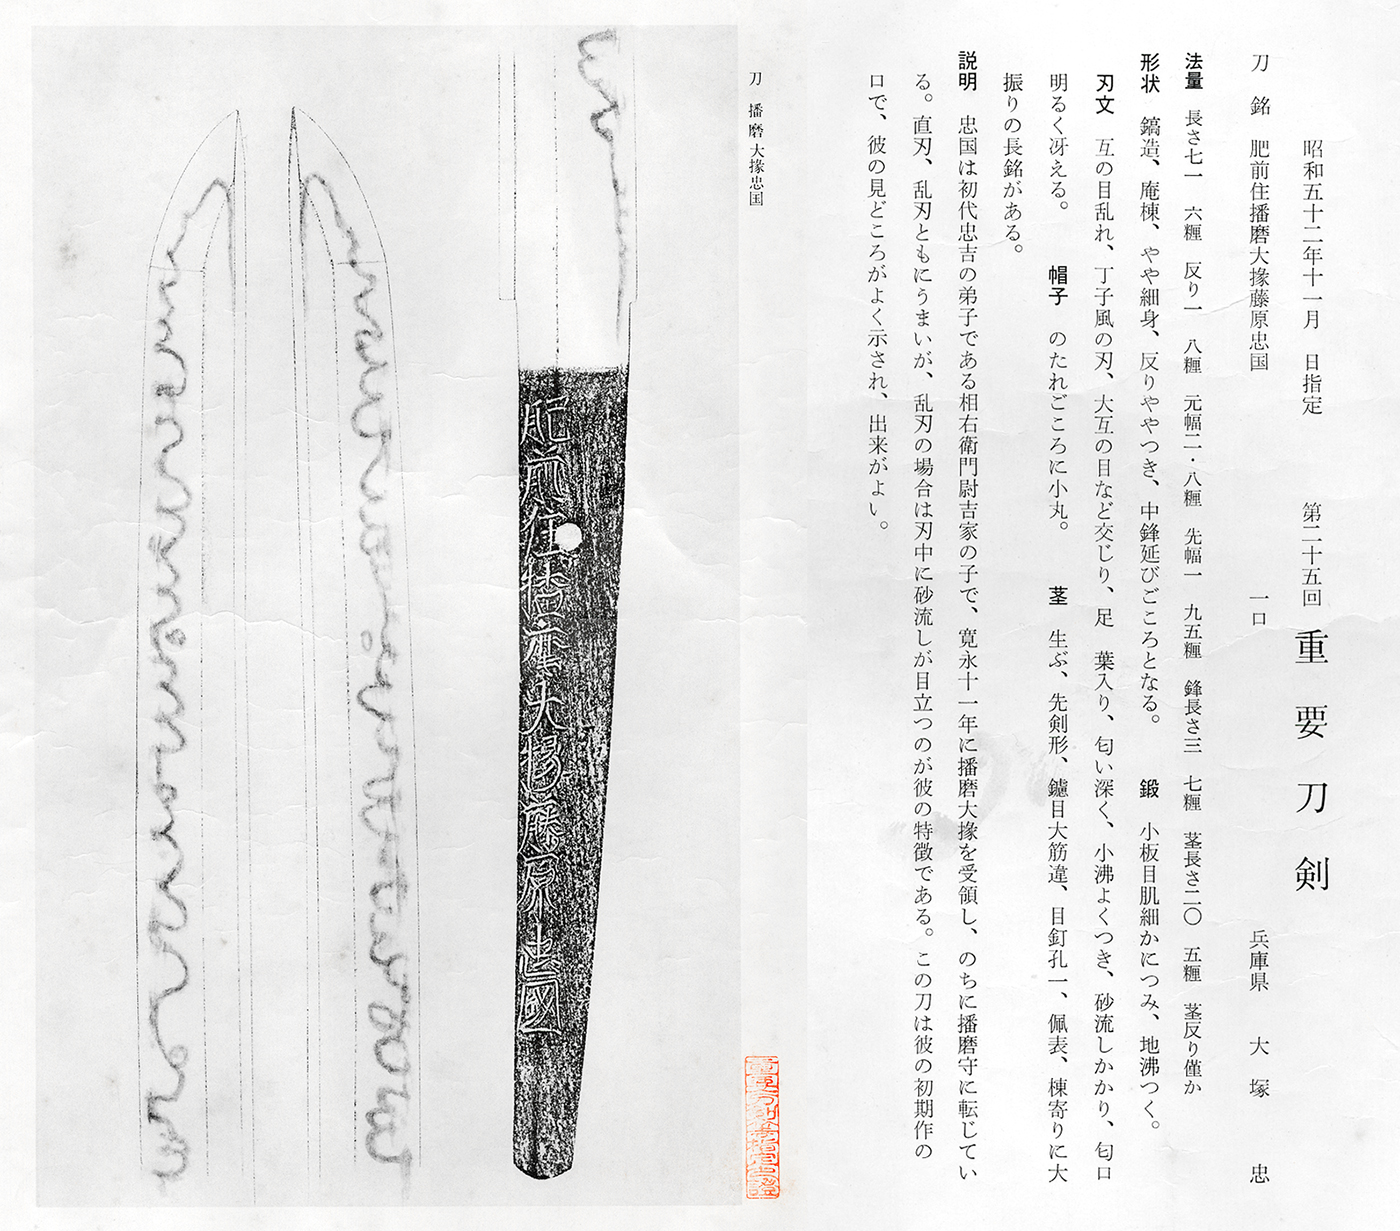 昭和五十二年十一月　日指定　第二十五回　重要刀剣
刀　銘　肥前住播磨大掾藤原忠国　一口　兵庫県　大塚　忠
法量　長さ七一　六糎　反り一　八糎　元幅二・八糎　先幅一　九五糎　鋒長さ三　七糎　茎長さ二〇　五糎　茎反り僅か
形状　鎬造、庵棟、やや細身、反りややつき、中鋒延びごころとなる。　鍛　小板目肌細かにつみ、地沸つく。
刃文　互の目乱れ、丁子風の刃、大互の目など交じり、足　葉入り、匂い深く、小沸よくつき、砂流しかかり、匂口
明るく冴える。　帽子　のたれごころに小丸。　茎　生ぶ、先剣形、鑢目大筋違、目釘孔一、佩表、棟寄りに大
振りの長銘がある。
説明　忠国は初代忠吉の弟子である相右衛門尉吉家の子で、寛永十一年に播磨大掾を受領し、のちに播磨守に転じてい
る。直刃、乱刃ともにうまいが、乱刃の場合は刃中に砂流しが目立つのが彼の特徴である。この刀は彼の初期作の
一口で、彼の見どころがよく示され、出来がよい。
刀　播磨大掾忠国
肥前住播磨大掾藤原忠國